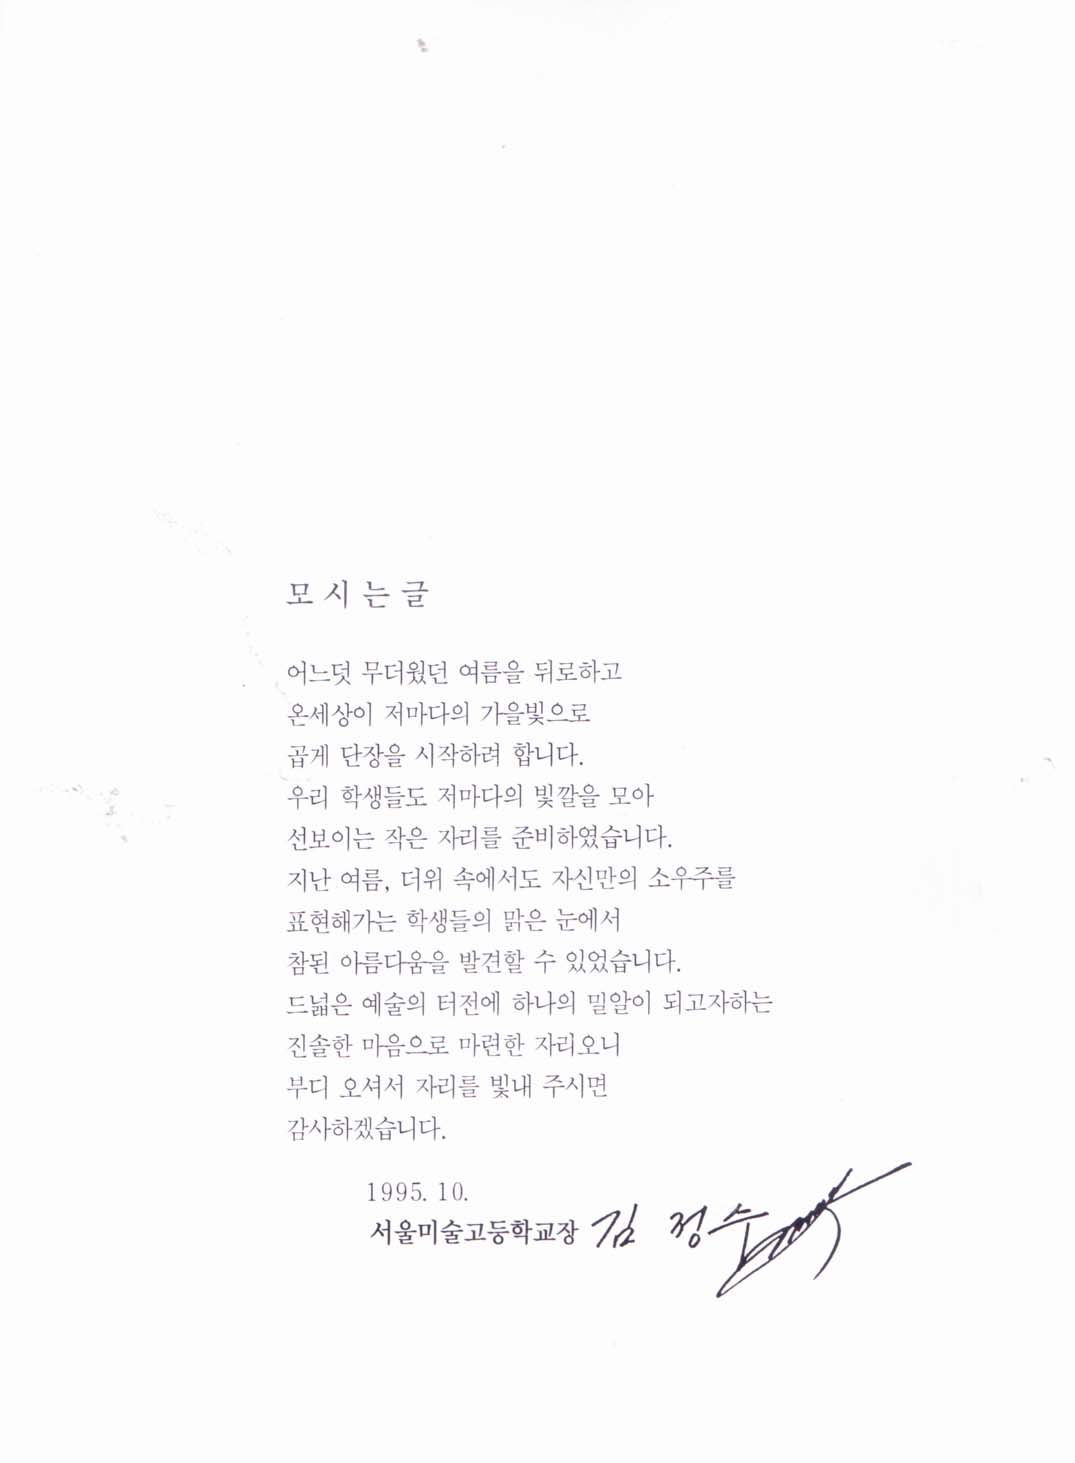 모시는글
어느덧 무더웠던 여름을 뒤로하고
온세상이 저마다의 가을빛으로
곱게 단장을 시작하려 합니다.
우리 학생들도 저마다의 빛깔을 모아
선보이는 작은 자리를 준비하였습니다.
지난 여름, 더위 속에서도 자신만의 소우주를
표현해가는 학생들의 맑은 눈에서
참된 아름다움을 발견할 수 있었습니다.
드넓은 예술의 터전에 하나의 밀알이 되고자하는
진솔한 마음으로 마련한 자리오니
부디 오셔서 자리를 빛내 주시면
감사하겠습니다.
1995. 10.
서울미술고등학교장 김 정수